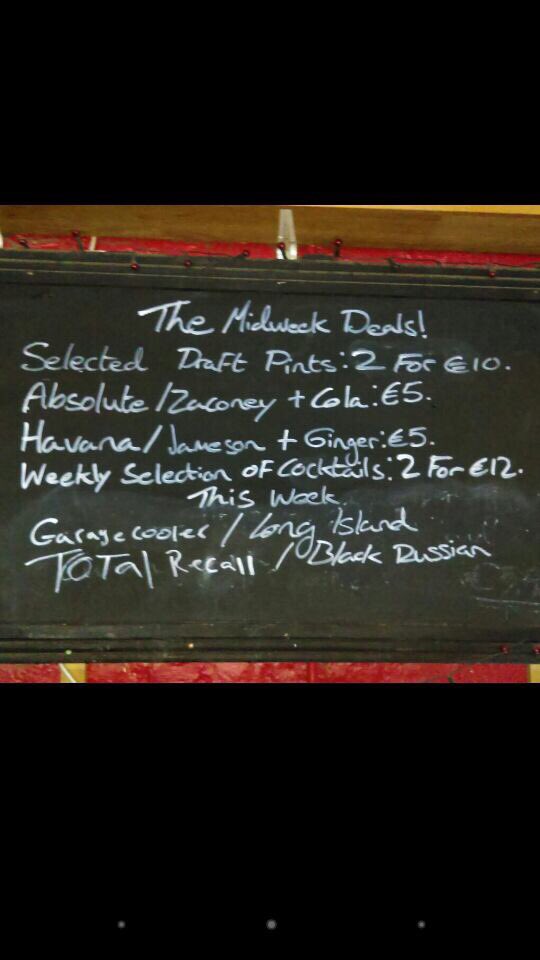 The Midweek Deals!
Selected Draft Pints: 2 For €10.
Absolute/Zaconey + Cola: €5.
Havana/Jameson + Ginger: €5.
Weekly Selection OF Cocktails: 2 For €12.
This Week
Garagecooler / Long Island
TOTal Recall / Black Russian